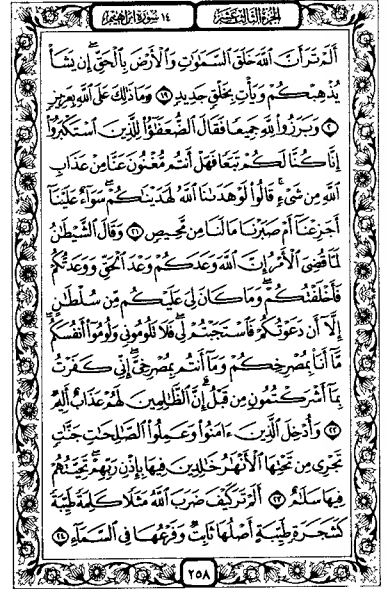 الجزء الثالث عشر
١٤ سورة ابراهيم
أَلَمْ تَرَ أَنَّ ٱللَّهَ خَلَقَ ٱلسَّمَٰوَٰتِ وَٱلْأَرْضَ بِٱلْحَقِّ ۚ إِن يَشَأْ
يُذْهِبْكُمْ وَيَأْتِ بِخَلْقٍ جَدِيدٍ ١٩ وَمَا ذَٰلِكَ عَلَى ٱللَّهِ بِعَزِيزٍ
٢٠ وَبَرَزُوا۟ لِلَّهِ جَمِيعًا فَقَالَ ٱلضُّعَفَٰٓؤُا۟ لِلَّذِينَ ٱسْتَكْبَرُوٓا۟
إِنَّا كُنَّا لَكُمْ تَبَعًا فَهَلْ أَنتُم مُّغْنُونَ عَنَّا مِنْ عَذَابِ
ٱللَّهِ مِن شَىْءٍ ۚ قَالُوا۟ لَوْ هَدَىٰنَا ٱللَّهُ لَهَدَيْنَٰكُمْ ۖ سَوَآءٌ عَلَيْنَآ
أَجَزِعْنَآ أَمْ صَبَرْنَا مَا لَنَا مِن مَّحِيصٍ ٢١ وَقَالَ ٱلشَّيْطَٰنُ
لَمَّا قُضِىَ ٱلْأَمْرُ إِنَّ ٱللَّهَ وَعَدَكُمْ وَعْدَ ٱلْحَقِّ وَوَعَدتُّكُمْ
فَأَخْلَفْتُكُمْ ۖ وَمَا كَانَ لِىَ عَلَيْكُم مِّن سُلْطَٰنٍ
إِلَّآ أَن دَعَوْتُكُمْ فَٱسْتَجَبْتُمْ لِى ۖ فَلَا تَلُومُونِى وَلُومُوٓا۟ أَنفُسَكُم ۖ
مَّآ أَنَا۠ بِمُصْرِخِكُمْ وَمَآ أَنتُم بِمُصْرِخِىَّ ۖ إِنِّى كَفَرْتُ
بِمَآ أَشْرَكْتُمُونِ مِن قَبْلُ ۗ إِنَّ ٱلظَّٰلِمِينَ لَهُمْ عَذَابٌ أَلِيمٌ
٢٢ وَأُدْخِلَ ٱلَّذِينَ ءَامَنُوا۟ وَعَمِلُوا۟ ٱلصَّٰلِحَٰتِ جَنَّٰتٍ
تَجْرِى مِن تَحْتِهَا ٱلْأَنْهَٰرُ خَٰلِدِينَ فِيهَا بِإِذْنِ رَبِّهِمْ ۖ تَحِيَّتُهُمْ
فِيهَا سَلَٰمٌ ٢٣ أَلَمْ تَرَ كَيْفَ ضَرَبَ ٱللَّهُ مَثَلًا كَلِمَةً طَيِّبَةً
كَشَجَرَةٍ طَيِّبَةٍ أَصْلُهَا ثَابِتٌ وَفَرْعُهَا فِى ٱلسَّمَآءِ ٢٤
٢٥٨